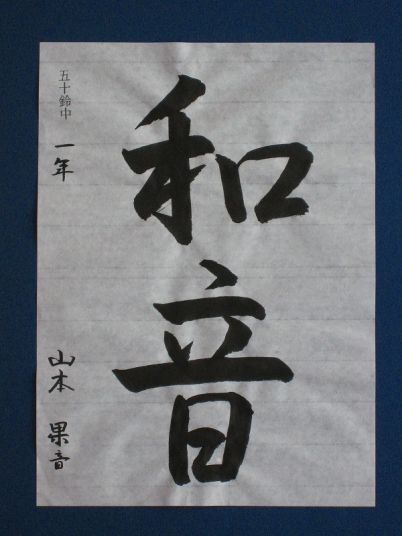 和音
五十鈴中 一年 山本 果音